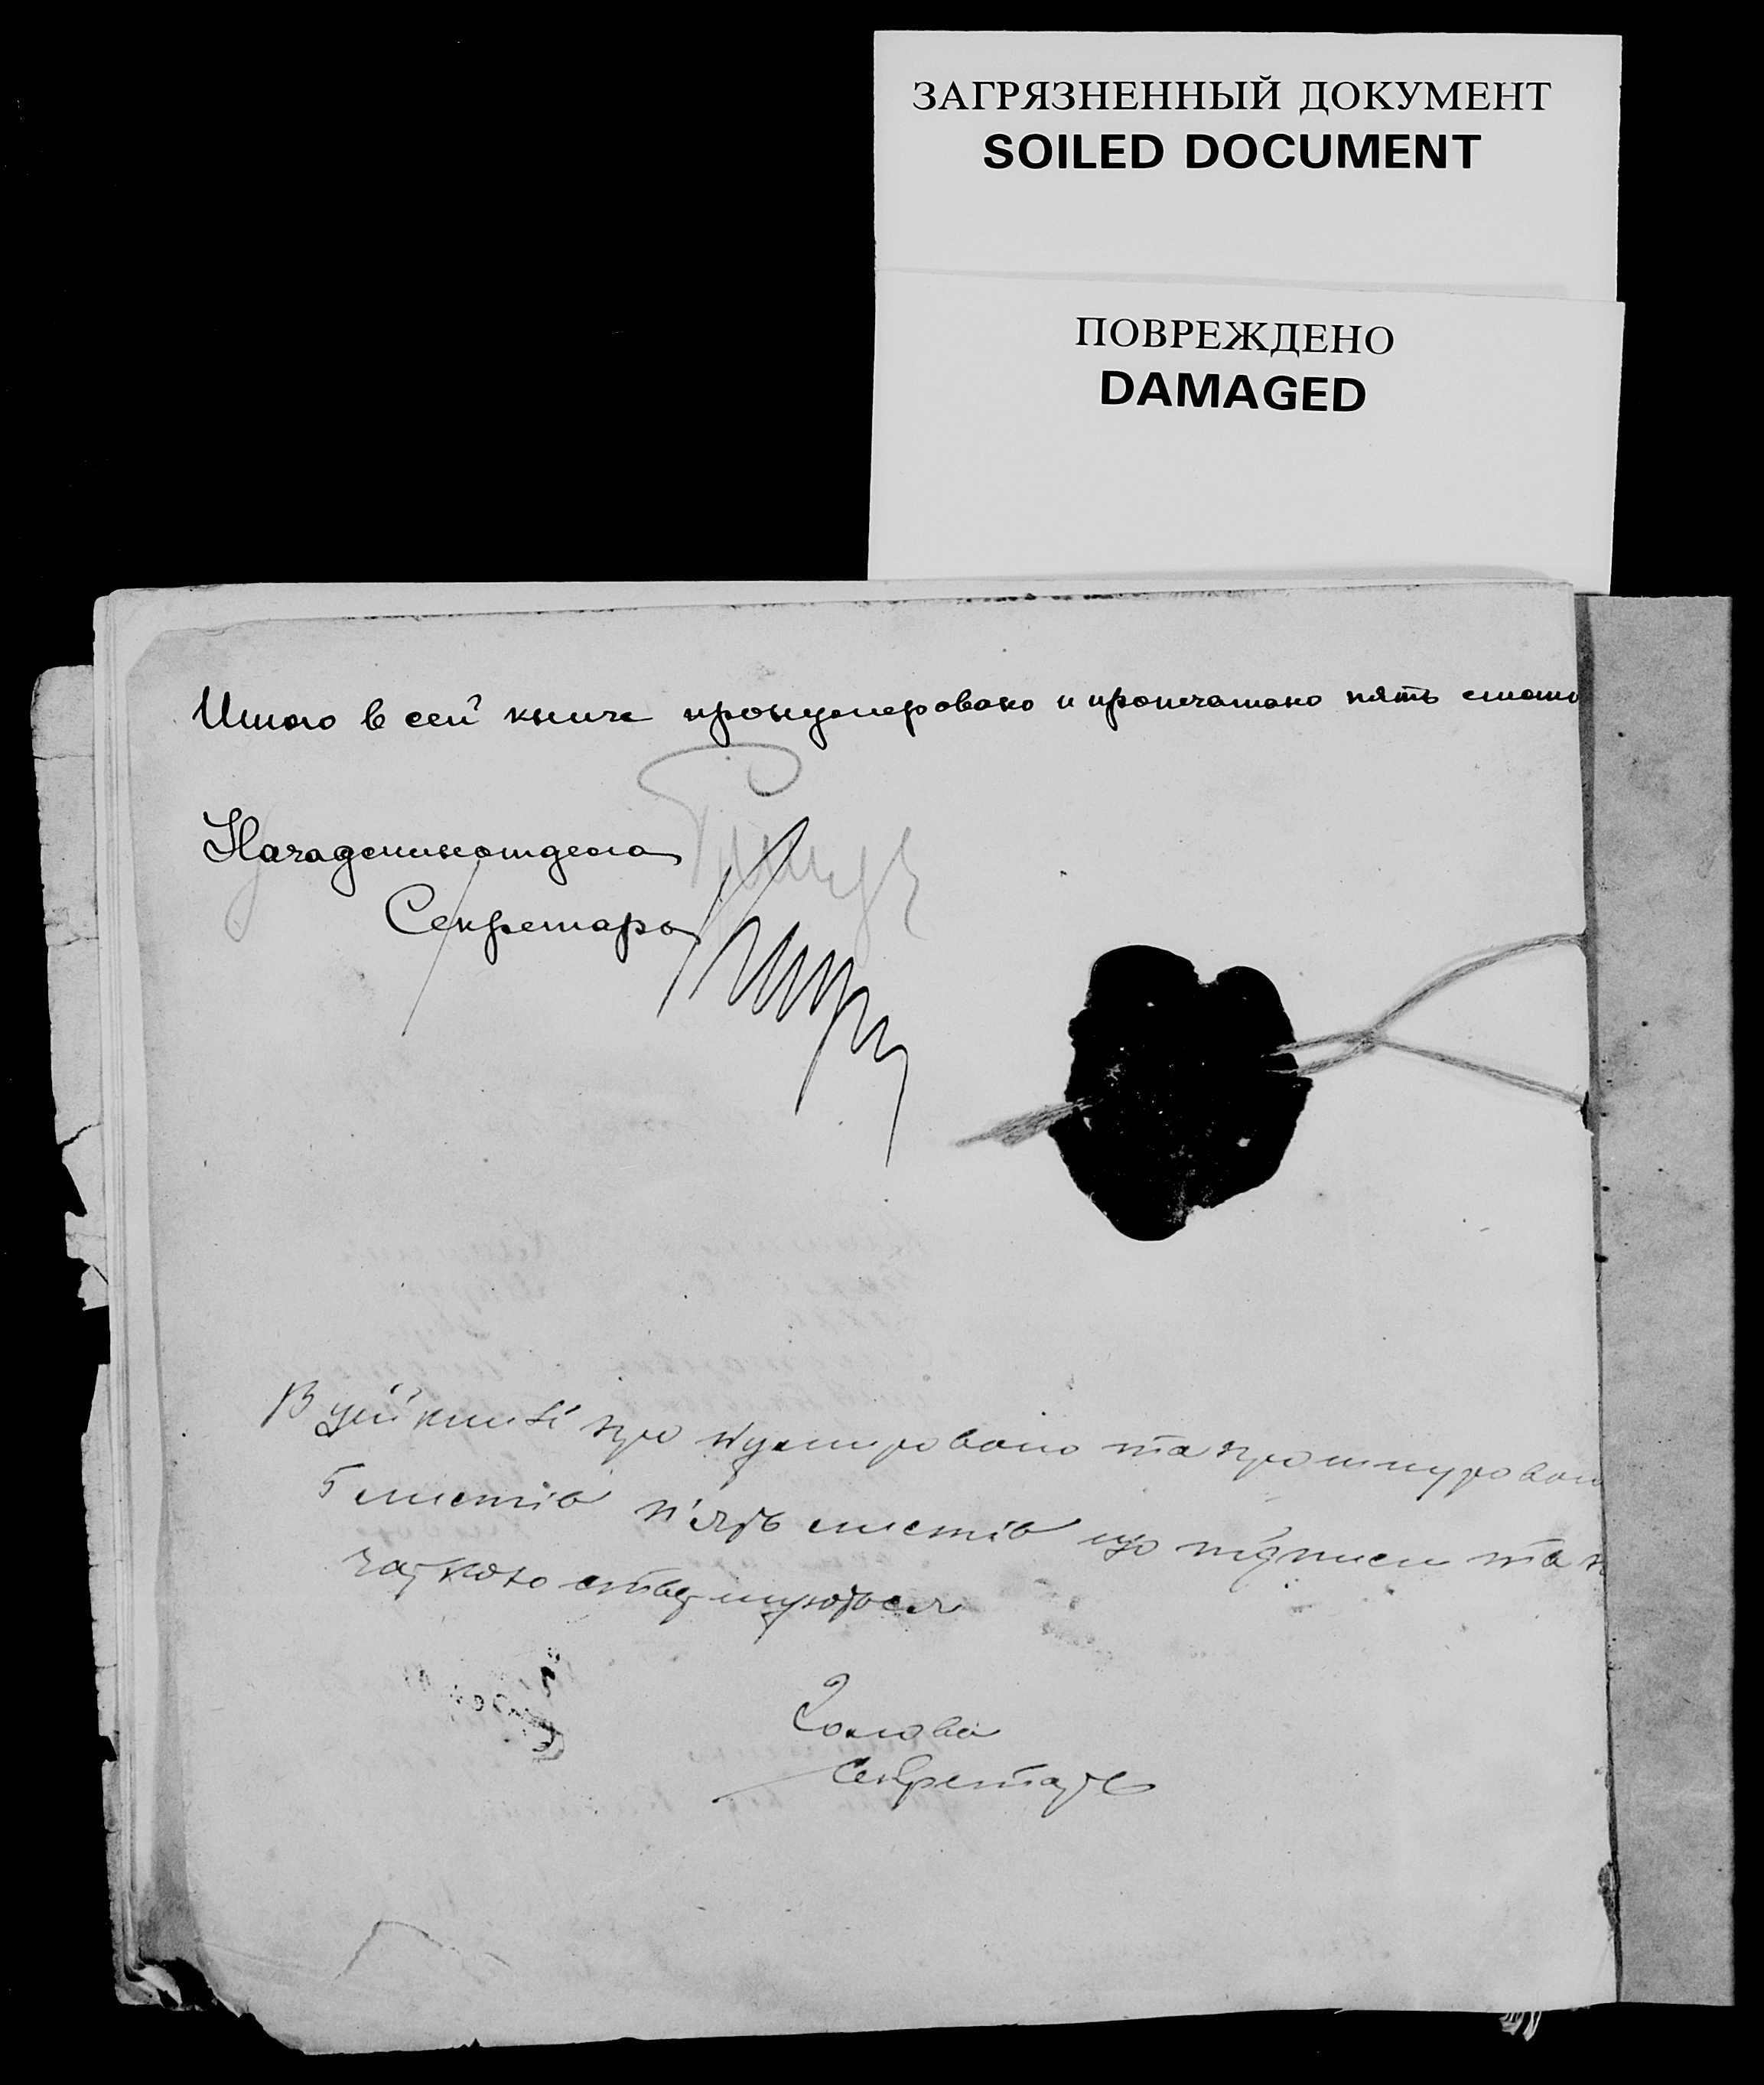 ЗАГРЯЗНЕННЫЙ ДОКУМЕНТ
SOILED DOCUMENT
ПОВРЕЖДЕНО
DAMAGED
Итого в сей книге пронумеровано и пропечатано пять
Начадминотдела
Секретарь
В цій книзі про нумеровано та прошнурован
5 листів п'ять листів що підписи та
чаткою ствержуються
Голова
Секретарь